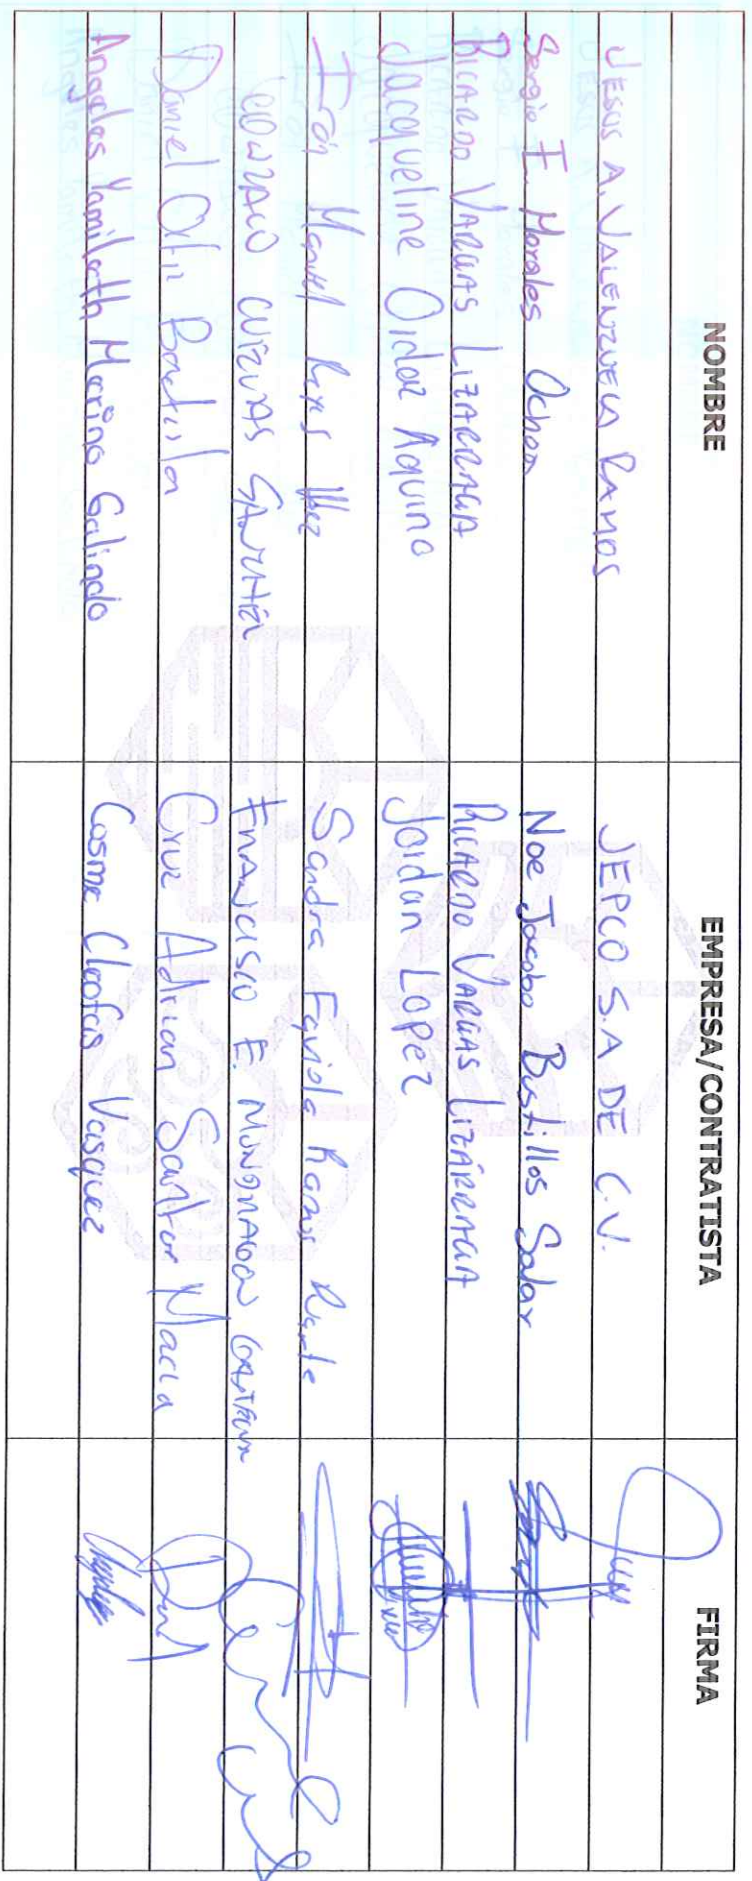 NOMBRE EMPRESA/CONTRATISTA FIRMA
JESUS A. VALENZUELA RAMOS JEPCO S.A DE C.V.
Sergio I. Morales Ochoa Noe Jacobo Bustillos Salas
RICARDO VARGAS LIZARRAGA RICARDO VARGAS LIZÁRRAGA
Jacqueline Ordaz Aquino Jordan Lopez
Manuel Sandra Faviola Ramos
GONZALO CUIZUAS SANCHEZ FRANCISCO E.
Daniel Ortiz Bautista Cruz Adrian Macia
Angeles Yamileth Merino Galindo Cosme Cleofas Vasquez